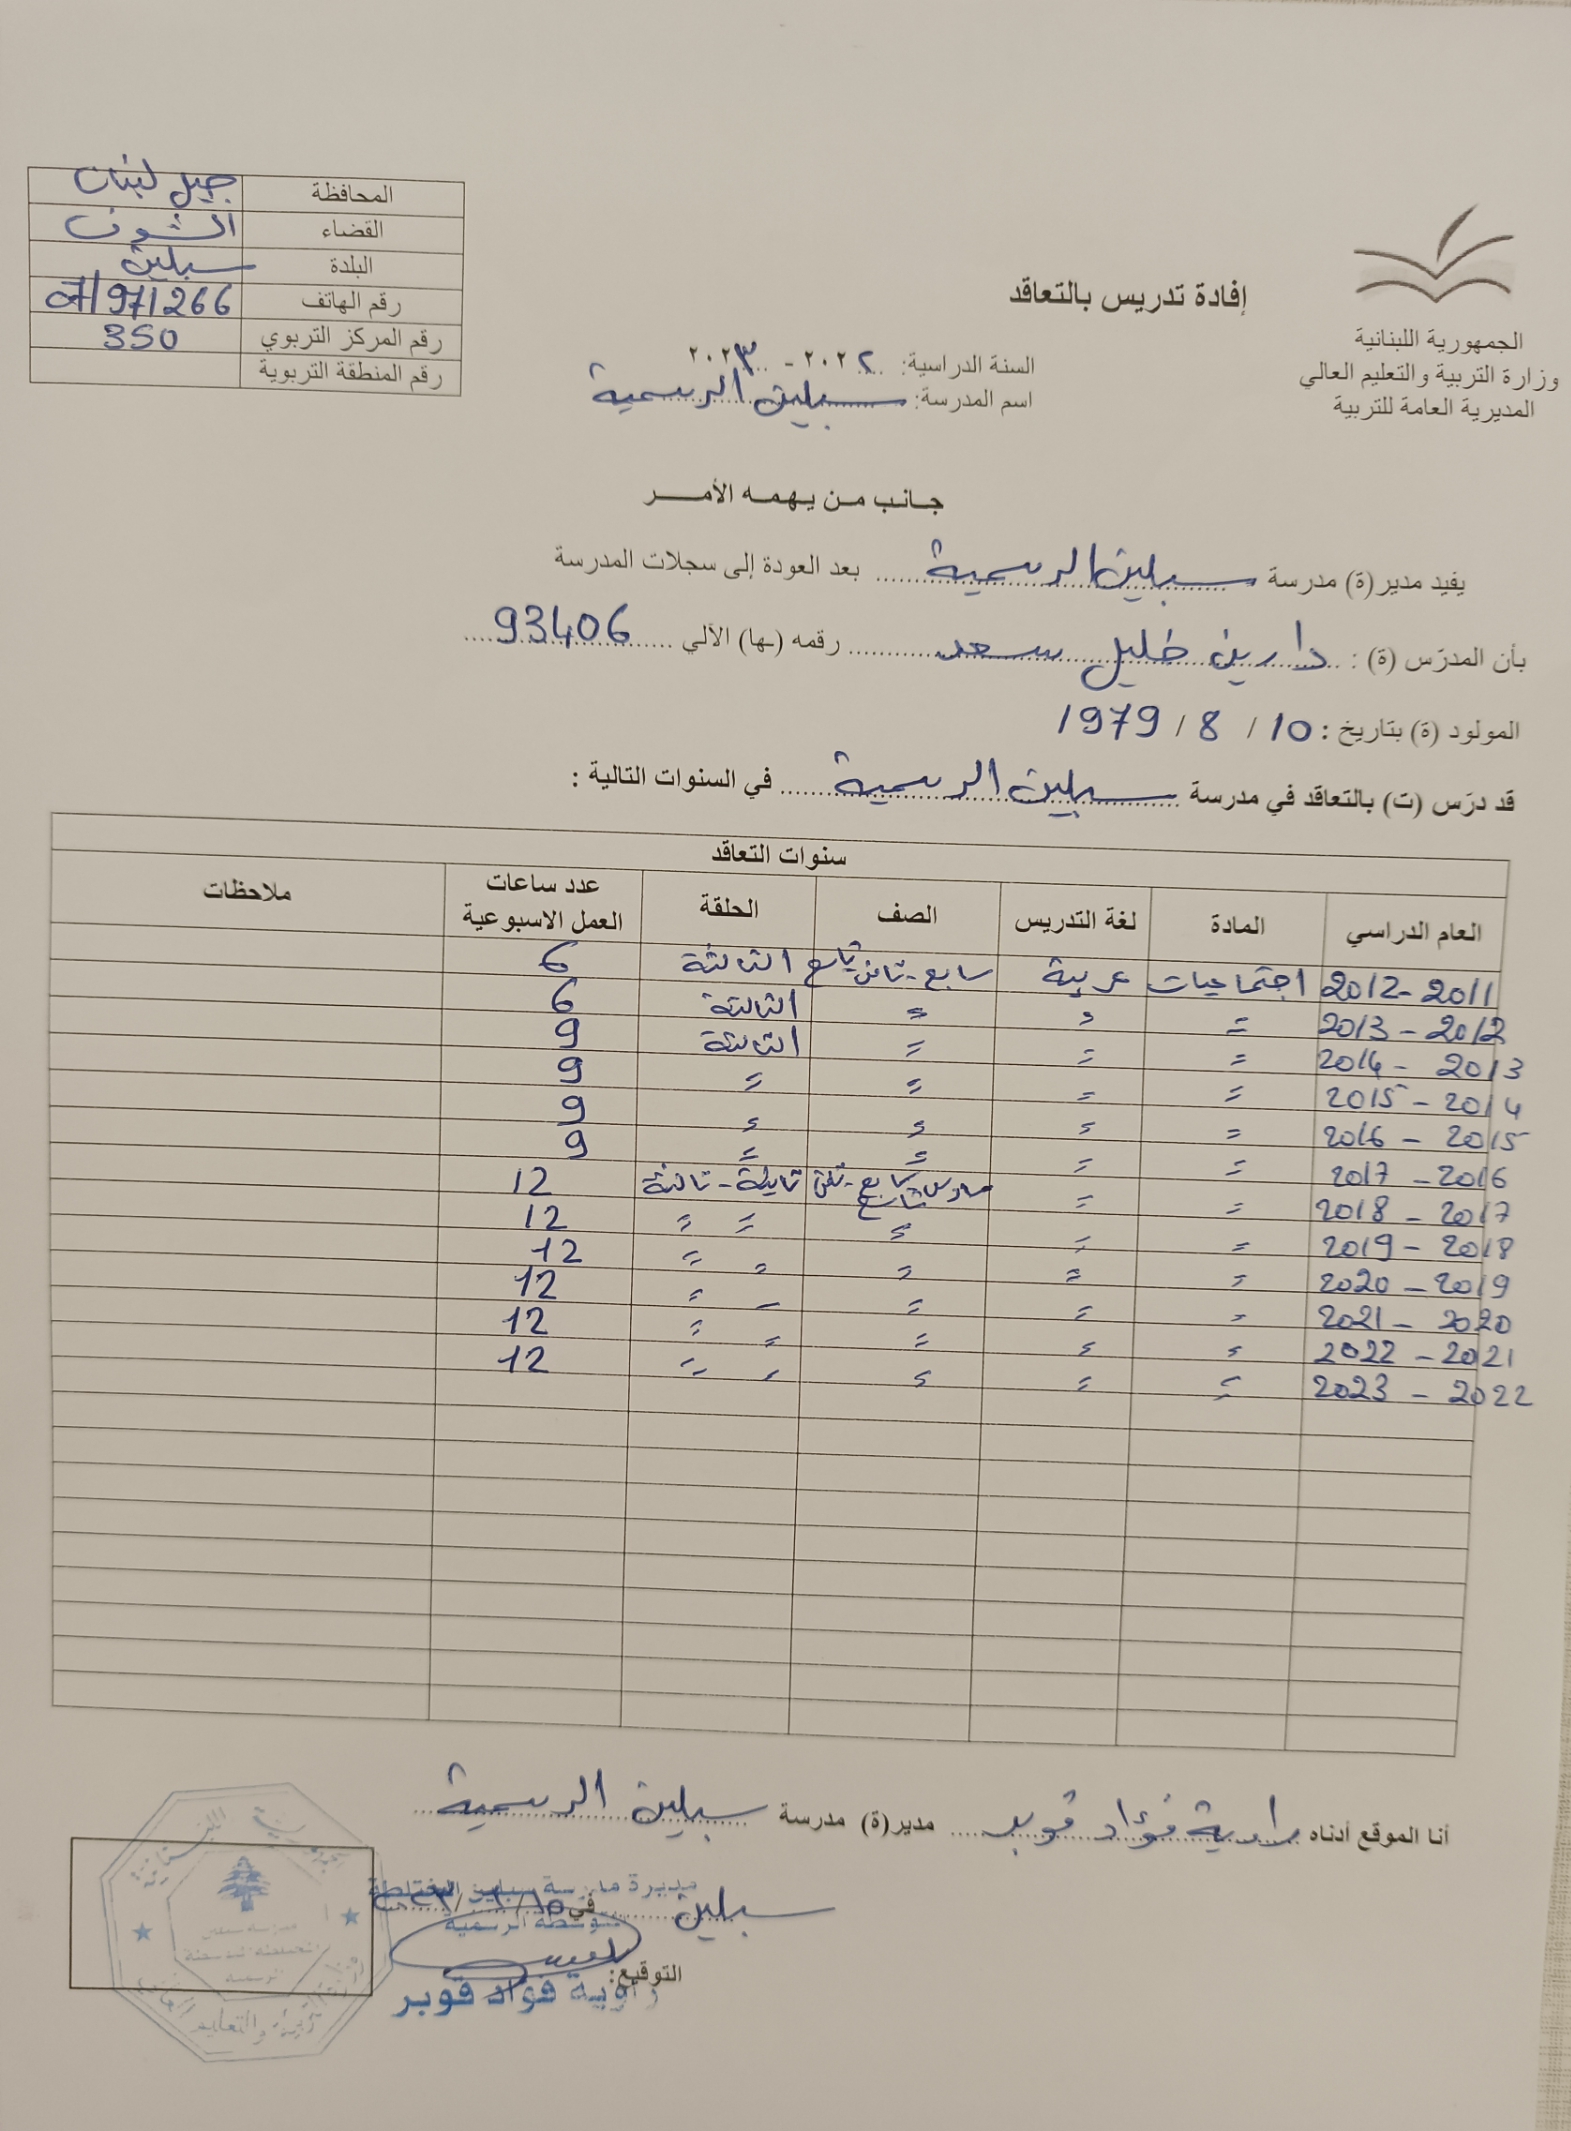 الجمهورية اللبنانية
وزارة التربية والتعليم العالي
المديرية العامة للتربية
إفادة تدريس بالتعاقد
السنة الدراسية: ٢٠٢٢ - ٢٠٢٣
اسم المدرسة: سبلين الرسمية
المحافظة جبل لبنان
القضاء الشوف
البلدة سبلين
رقم الهاتف 07/971266
رقم المركز التربوي 350
رقم المنطقة التربوية
جانب من يهمه الأمر
يفيد مدير(ة) مدرسة سبلين الرسمية بعد العودة إلى سجلات المدرسة
بأن المدرّس (ة) : دارين خليل سعد رقمه (ـها) الآلي 93406
المولود (ة) بتاريخ : 10 / 8 / 1979
قد درّس (ت) بالتعاقد في مدرسة سبلين الرسمية في السنوات التالية :
سنوات التعاقد
العام الدراسي المادة لغة التدريس الصف الحلقة عدد ساعات العمل الاسبوعية ملاحظات
2011-2012 اجتماعيات عربية سابع - ثامن تاسع الثالثة 6
2012 - 2013 = = = الثالثة 6
2013 - 2014 = = = الثالثة 9
2014 - 2015 = = = = 9
2015 - 2016 = = = = 9
2016 - 2017 = = = = 9
2017 - 2018 = = سادس سابع - ثامن تاسع ثانية - ثالثة 12
2018 - 2019 = = = = = 12
2019 - 2020 = = = = = 12
2020 - 2021 = = = = = 12
2021 - 2022 = = = = = 12
2022 - 2023 = = = = = 12
أنا الموقع أدناه راوية فؤاد قوبر مدير(ة) مدرسة سبلين الرسمية
سبلين في
مديرة مدرسة سبلين المختلطة
الرسمية
التوقيع:
راوية فؤاد قوبر